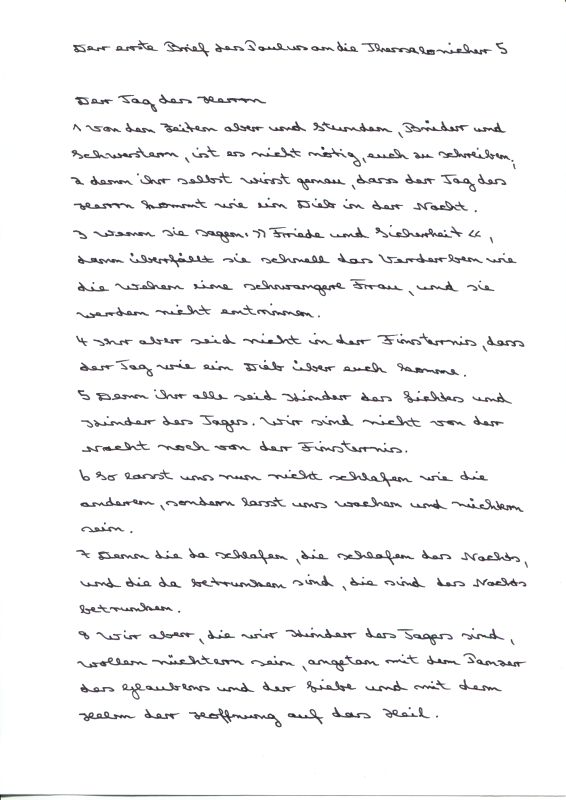 Der erste Brief des Paulus an die Thessalonicher 5
Der Tag des Herrn
1 Von den Zeiten aber und Stunden, Brüder und
Schwestern, ist es nicht nötig, euch zu schreiben;
2 denn ihr selbst wisst genau, dass der Tag des
Herrn kommt wie ein Dieb in der Nacht.
3 Wenn sie sagen: »Friede und Sicherheit«,
dann überfällt sie schnell das Verderben wie
die Wehen eine schwangere Frau, und sie
werden nicht entrinnen.
4 Ihr aber seid nicht in der Finsternis, dass
der Tag wie ein Dieb über euch komme.
5 Denn ihr alle seid Kinder des Lichtes und
Kinder des Tages. Wir sind nicht von der
Nacht noch von der Finsternis.
6 So lasst uns nun nicht schlafen wie die
anderen, sondern lasst uns wachen und nüchtern
sein.
7 Denn die da schlafen, die schlafen des Nachts,
und die da betrunken sind, die sind des Nachts
betrunken.
8 Wir aber, die wir Kinder des Tages sind,
wollen nüchtern sein, angetan mit dem Panzer
des Glaubens und der Liebe und mit dem
Helm der Hoffnung auf das Heil.